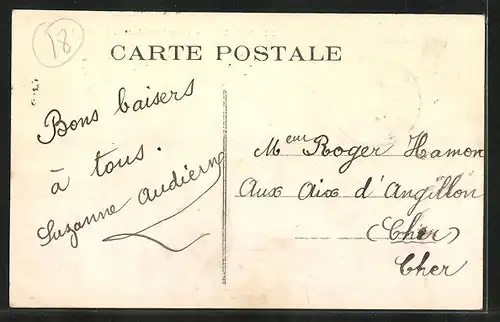 18
CARTE POSTALE
Bons baisers
à tous.
Suzanne Audierne
Meur Roger Hamon
Aux Aix d'Angillon
(Cher)
Cher